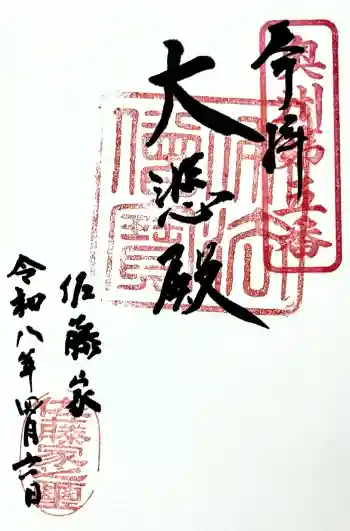 奉拝
奥州第五番
大悲殿
佐藤家
令和八年四月六日
佐藤家之璽